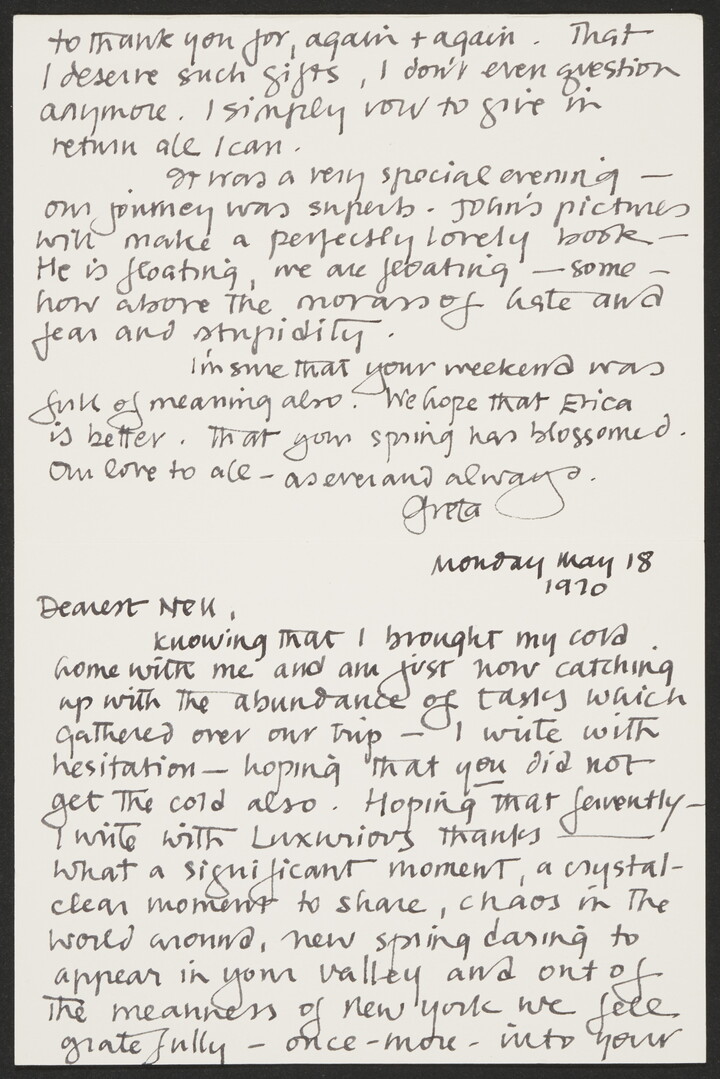 to thank you for, again + again. That
I deserve such gifts, I don't even question
anymore. I simply vow to give in
return all I can.
It was a very special evening —
our journey was superb. John's pictures
will make a perfectly lovely book —
He is floating, we are floating — some —
how above the morass of hate and
fear and stupidity.
I'm sure that your weekend was
full of meaning also. We hope that Erica
is better. That your spring has blossomed.
Our love to all — as ever and always.
Greta
Monday May 18
1970
Dearest Nell,
Knowing that I brought my cold
home with me and am just now catching
up with the abundance of tasks which
gathered over our trip — I write with
hesitation — hoping that you did not
get the cold also. Hoping that fervently —
I write with Luxurious thanks —
what a significant moment, a crystal-
clear moment to share, chaos in the
world around, new spring daring to
appear in your valley and out of
the meanness of new york we fell
gratefully — once-more - into your